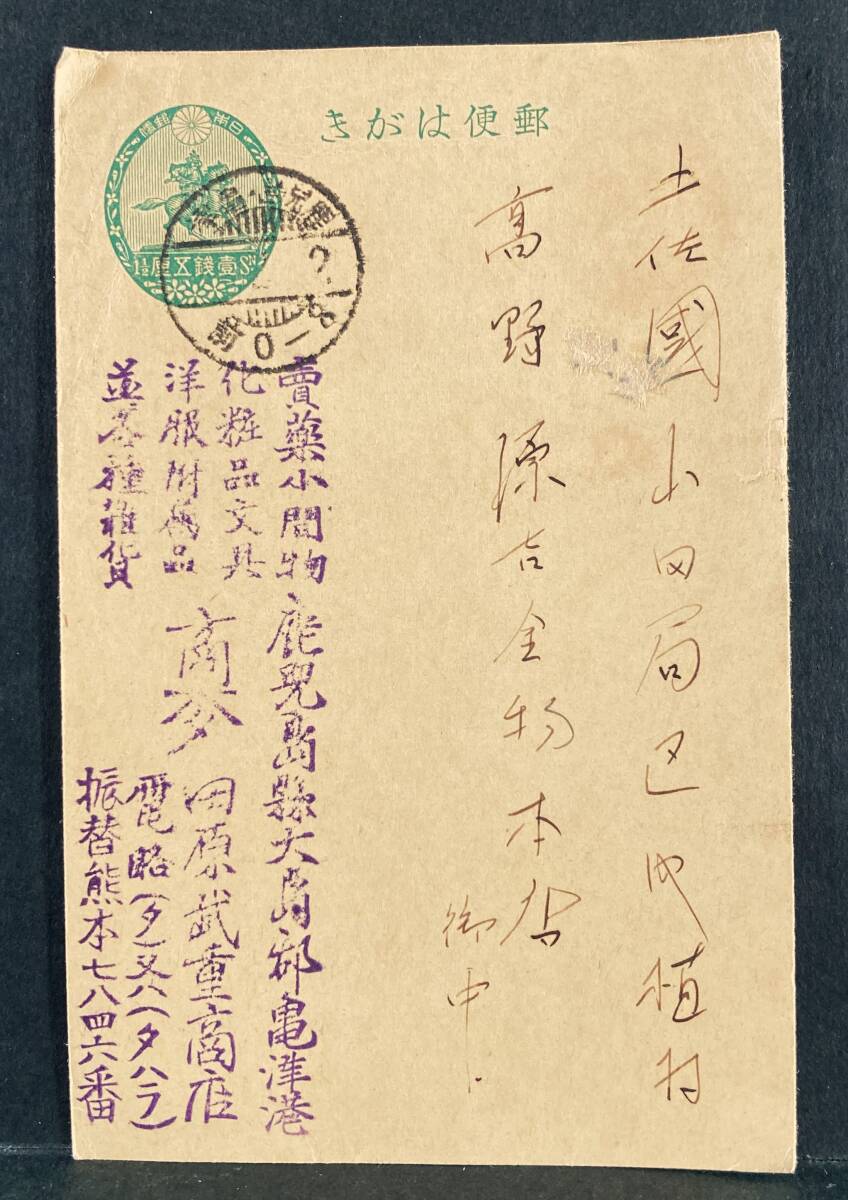 郵便はがき
日本郵便
1½ 壹錢五厘 Sⁿ
鹿兒島
土佐國山田局区内植村
高野源吉金物本店
御中
賣藥小間物
化粧品文具
洋服附属品
並各種雑貨
鹿児島縣大島郡亀津港
商
田原武重商店
電略(タ)又ハ(タハラ)
振替熊本七八四六番